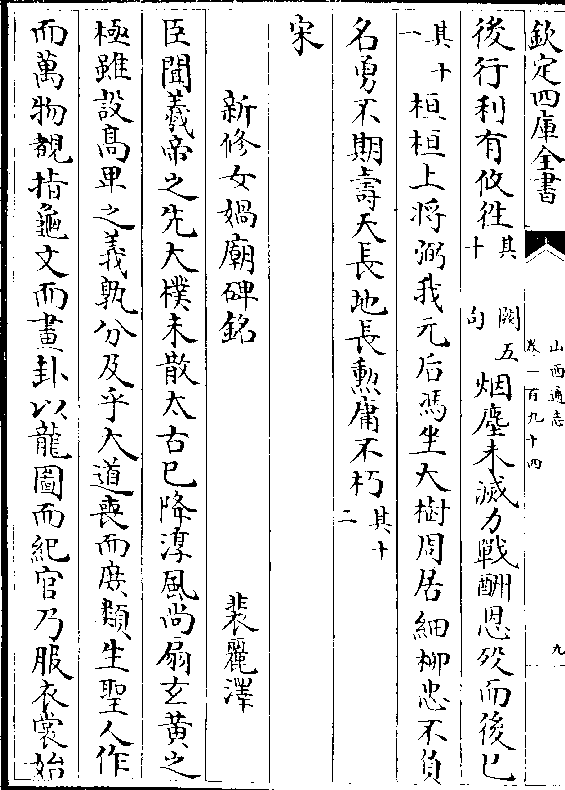 欽定四庫全書
山西通志
卷一百九十四
九
後行利有攸往其十 闕五句 烟塵未滅力戰酬恩殁而後已
其十一 桓桓上將弼我元后馮坐大樹周居細柳忠不負
名勇不期壽天長地長勲庸不朽其十二
宋
新修女媧廟碑銘 裴麗澤
臣聞羲帝之先大樸未散太古已降淳風尚扇玄黄之
極雖設髙卑之義孰分及乎大道喪而庶類生聖人作
而萬物覩指龜文而畫卦以龍圖而紀官乃服衣裳始